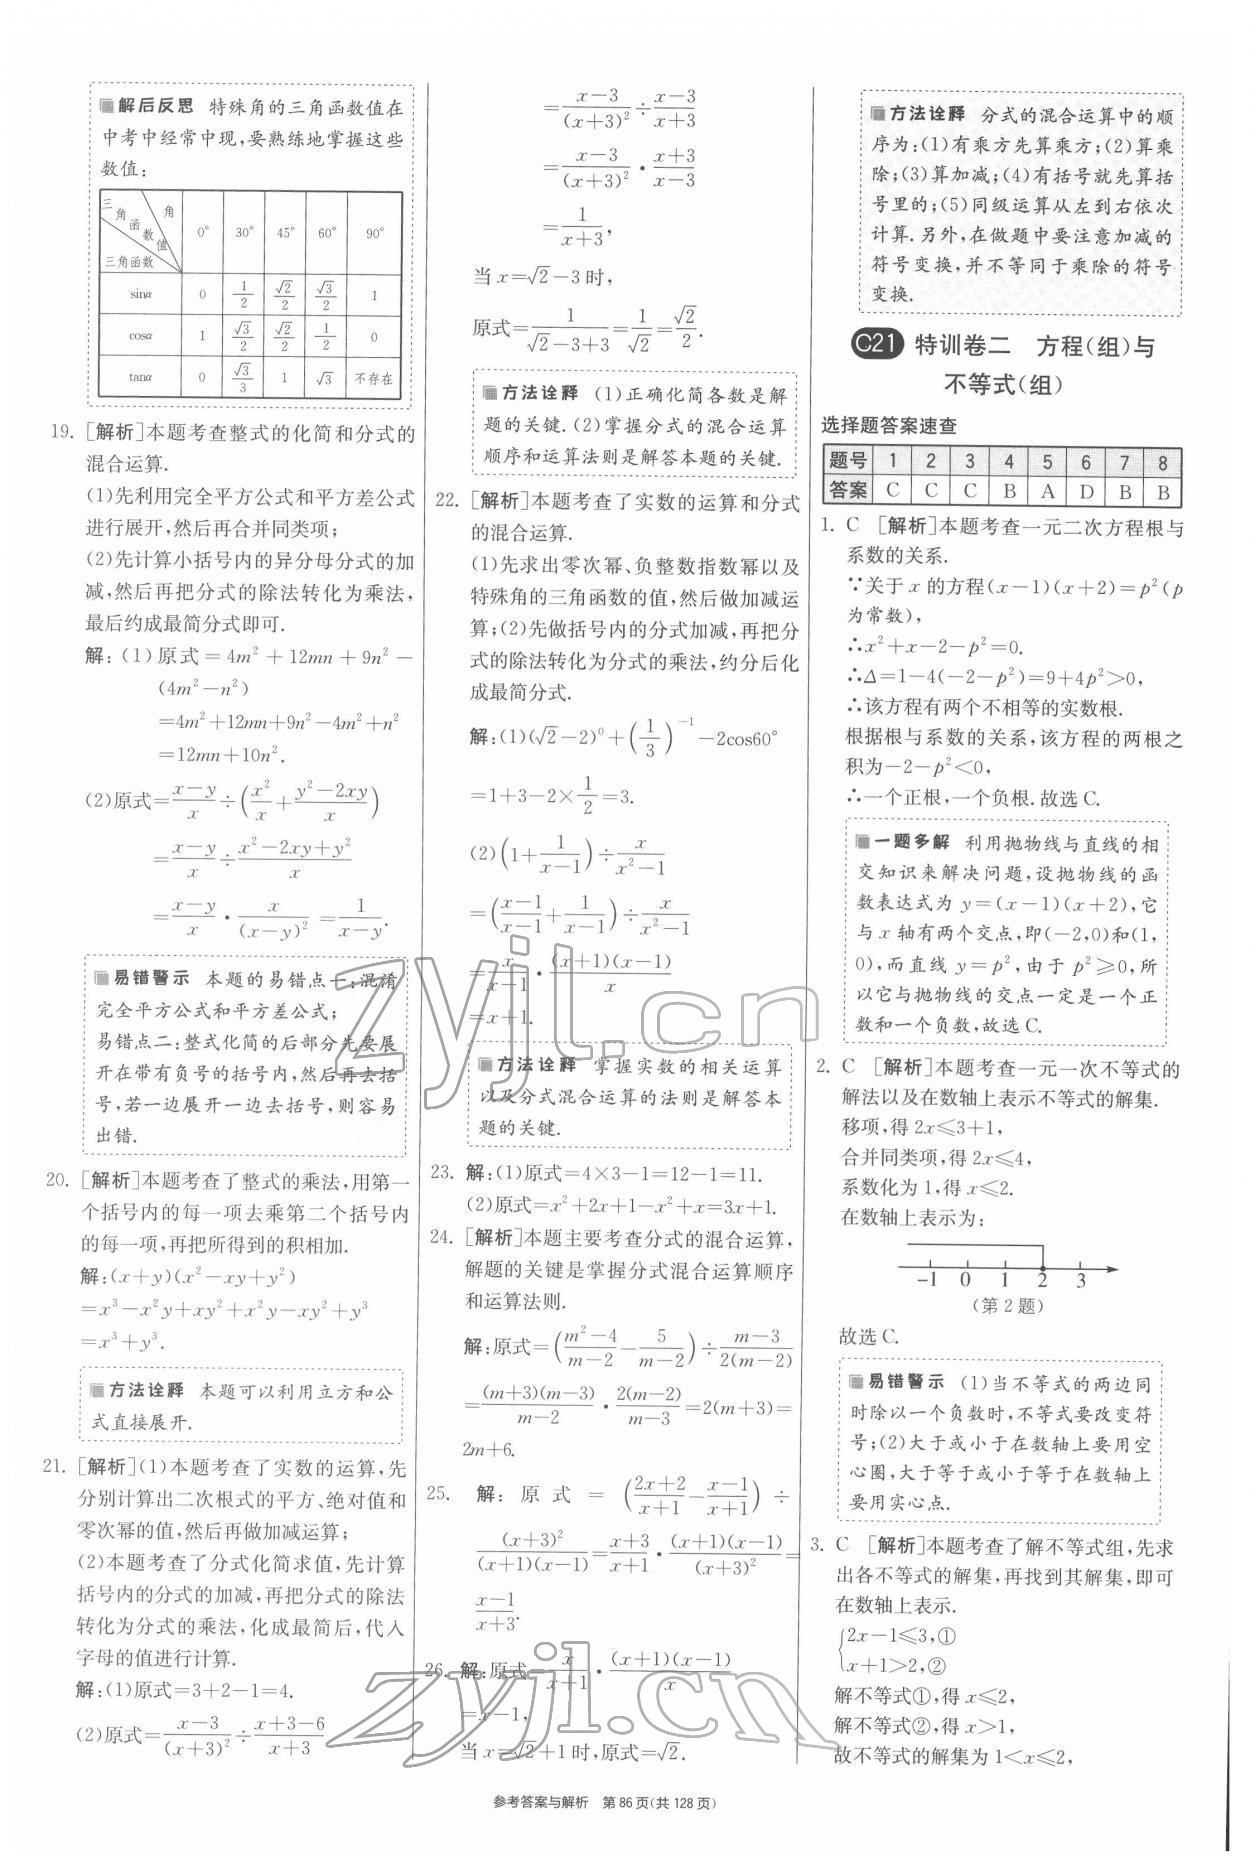 解后反思 特殊角的三角函数值在
中考中经常中现,要熟练地掌握这些
数值:
三角函数值 角 三角函数 0° 30° 45° 60° 90°
sinα 0 1/2 √2/2 √3/2 1
cosα 1 √3/2 √2/2 1/2 0
tanα 0 √3/3 1 √3 不存在
19. [解析]本题考查整式的化简和分式的
混合运算.
(1)先利用完全平方公式和平方差公式
进行展开,然后再合并同类项;
(2)先计算小括号内的异分母分式的加
减,然后再把分式的除法转化为乘法,
最后约成最简分式即可.
解:(1)原式=4m²+12mn+9n²-
(4m²-n²)
=4m²+12mn+9n²-4m²+n²
=12mn+10n².
(2)原式=(x-y)/x÷(x²/x+(y²-2xy)/x)
=(x-y)/x÷(x²-2xy+y²)/x
=(x-y)/x·x/(x-y)²=1/(x-y).
易错警示 本题的易错点一:混淆
完全平方公式和平方差公式;
易错点二:整式化简的后部分先要展
开在带有负号的括号内,然后再去括
号,若一边展开一边去括号,则容易
出错.
20. [解析]本题考查了整式的乘法,用第一
个括号内的每一项去乘第二个括号内
的每一项,再把所得到的积相加.
解:(x+y)(x²-xy+y²)
=x³-x²y+xy²+x²y-xy²+y³
=x³+y³.
方法诠释 本题可以利用立方和公
式直接展开.
21. [解析](1)本题考查了实数的运算,先
分别计算出二次根式的平方、绝对值和
零次幂的值,然后再做加减运算;
(2)本题考查了分式化简求值,先计算
括号内的分式的加减,再把分式的除法
转化为分式的乘法,化成最简后,代入
字母的值进行计算.
解:(1)原式=3+2-1=4.
(2)原式=(x-3)/(x+3)²÷(x+3-6)/(x+3)
=(x-3)/(x+3)²÷(x-3)/(x+3)
=(x-3)/(x+3)²·(x+3)/(x-3)
=1/(x+3),
当x=√2-3时,
原式=1/(√2-3+3)=1/√2=√2/2.
方法诠释 (1)正确化简各数是解
题的关键.(2)掌握分式的混合运算
顺序和运算法则是解答本题的关键.
22. [解析]本题考查了实数的运算和分式
的混合运算.
(1)先求出零次幂、负整数指数幂以及
特殊角的三角函数的值,然后做加减运
算;(2)先做括号内的分式加减,再把分
式的除法转化为分式的乘法,约分后化
成最简分式.
解:(1)(√2-2)⁰+(1/3)⁻¹-2cos60°
=1+3-2×1/2=3.
(2)(1+1/(x-1))÷x/(x²-1)
=((x-1)/(x-1)+1/(x-1))÷x/(x²-1)
=x/(x-1)·(x+1)(x-1)/x
=x+1.
方法诠释 掌握实数的相关运算
以及分式混合运算的法则是解答本
题的关键.
23. 解:(1)原式=4×3-1=12-1=11.
(2)原式=x²+2x+1-x²+x=3x+1.
24. [解析]本题主要考查分式的混合运算,
解题的关键是掌握分式混合运算顺序
和运算法则.
解:原式=((m²-4)/(m-2)-5/(m-2))÷(m-3)/2(m-2)
=(m+3)(m-3)/(m-2)·2(m-2)/(m-3)=2(m+3)=
2m+6.
25. 解:原式=((2x+2)/(x+1)-(x-1)/(x+1))÷
(x+3)²/(x+1)(x-1)=(x+3)/(x+1)·(x+1)(x-1)/(x+3)²=
(x-1)/(x+3).
26. 解:原式=x/(x+1)·(x+1)(x-1)/x
=x-1,
当x=√2+1时,原式=√2.
方法诠释 分式的混合运算中的顺
序为:(1)有乘方先算乘方;(2)算乘
除;(3)算加减;(4)有括号就先算括
号里的;(5)同级运算从左到右依次
计算.另外,在做题中要注意加减的
符号变换,并不等同于乘除的符号
变换.
C21 特训卷二 方程(组)与
不等式(组)
选择题答案速查
题号 1 2 3 4 5 6 7 8
答案 C C C B A D B B
1. C [解析]本题考查一元二次方程根与
系数的关系.
∵关于x的方程(x-1)(x+2)=p²(p
为常数),
∴x²+x-2-p²=0.
∴Δ=1-4(-2-p²)=9+4p²>0,
∴该方程有两个不相等的实数根.
根据根与系数的关系,该方程的两根之
积为-2-p²<0,
∴一个正根,一个负根.故选C.
一题多解 利用抛物线与直线的相
交知识来解决问题,设抛物线的函
数表达式为y=(x-1)(x+2),它
与x轴有两个交点,即(-2,0)和(1,
0),而直线y=p²,由于p²≥0,所
以它与抛物线的交点一定是一个正
数和一个负数,故选C.
2. C [解析]本题考查一元一次不等式的
解法以及在数轴上表示不等式的解集.
移项,得2x≤3+1,
合并同类项,得2x≤4,
系数化为1,得x≤2.
在数轴上表示为:
-1 0 1 2 3
(第2题)
故选C.
易错警示 (1)当不等式的两边同
时除以一个负数时,不等式要改变符
号;(2)大于或小于在数轴上要用空
心圈,大于等于或小于等于在数轴上
要用实心点.
3. C [解析]本题考查了解不等式组,先求
出各不等式的解集,再找到其解集,即可
在数轴上表示.
{2x-1≤3,①
x+1>2,②
解不等式①,得x≤2,
解不等式②,得x>1,
故不等式的解集为1<x≤2,
参考答案与解析 第86页(共128页)
zyjl.cn
zyjl.cn